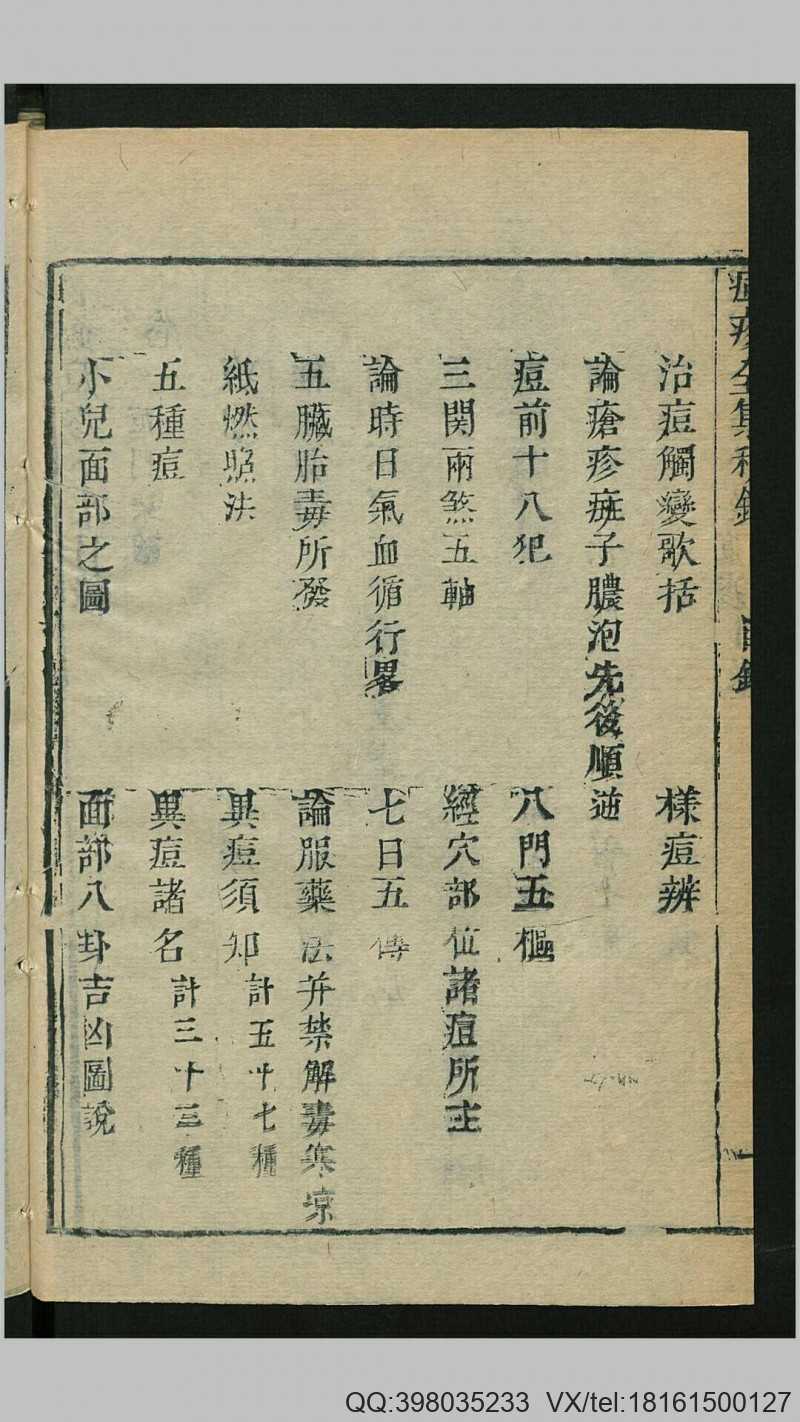 痘疹全集秘錄 目錄 一
治痘觸變歌括 樣痘辨
論瘡疹斑子膿泡先後順逆
痘前十八犯 八門五樞
三関兩煞五軸 經穴部位諸痘所主
論時日氣血循行畧 七日五傳
五臟胎毒所發 論服藥法并禁解毒寒凉
紙燃照法 異痘須知計五十七種
五種痘 異痘諸名計三十三種
小兒面部之圖 面部八卦吉凶圖說
QQ:398035233 VX/tel:18161500127